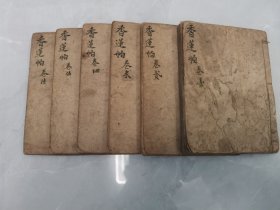 香蓮帕 卷
香蓮帕 卷
香蓮帕 卷四
香蓮帕 卷
香蓮帕 卷
香蓮帕 卷